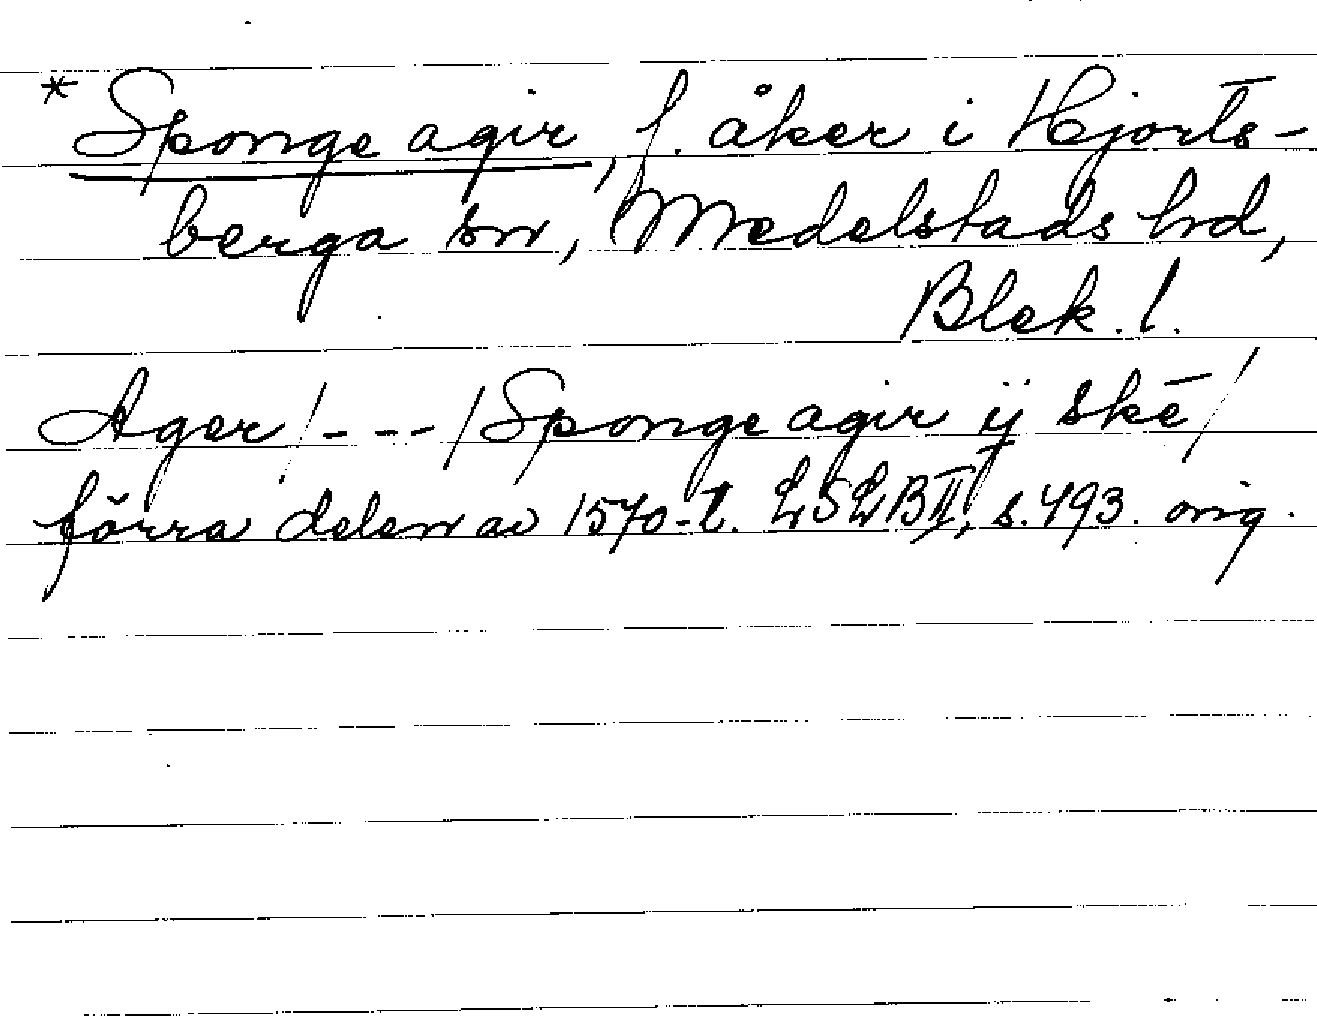 * Sponge agir, f. åker i Hjorts-
berga sn, Medelstads hd,
Blek. l.
Ager / - - - / Sponge agir ij skē /
förra delen av 1570-t. LSLB II, s. 493. orig.